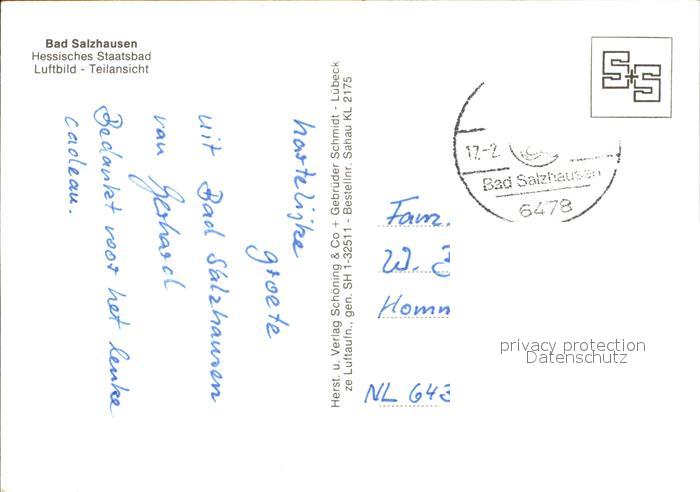 Bad Salzhausen
Hessisches Staatsbad
Luftbild - Teilansicht
hartelijke
groete
uit Bad Salzhausen
van Gerhard
Bedankt voor het leuke
cadeau.
Herst. u. Verlag Schöning & Co + Gebrüder Schmidt - Lübeck
ze Luftaufn., gen. SH 1-32511 - Bestellnr. Sahau KL 2175
S+S
17.-2.
Bad Salzhausen
6478
Fam.
W.
Homm
NL 643
privacy protection
Datenschutz